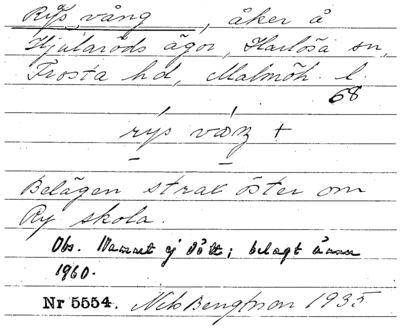 Rys vång, åker å
Hjularöds ägor, Harlösa sn,
Frosta hd, Malmöh. l.
68
rys vaŋ +
Belägen strax öster om
Ry skola.
Obs. Namnet ej dött; belagt ännu
1960.
Nr 5554. Nils Bengtsson 1935